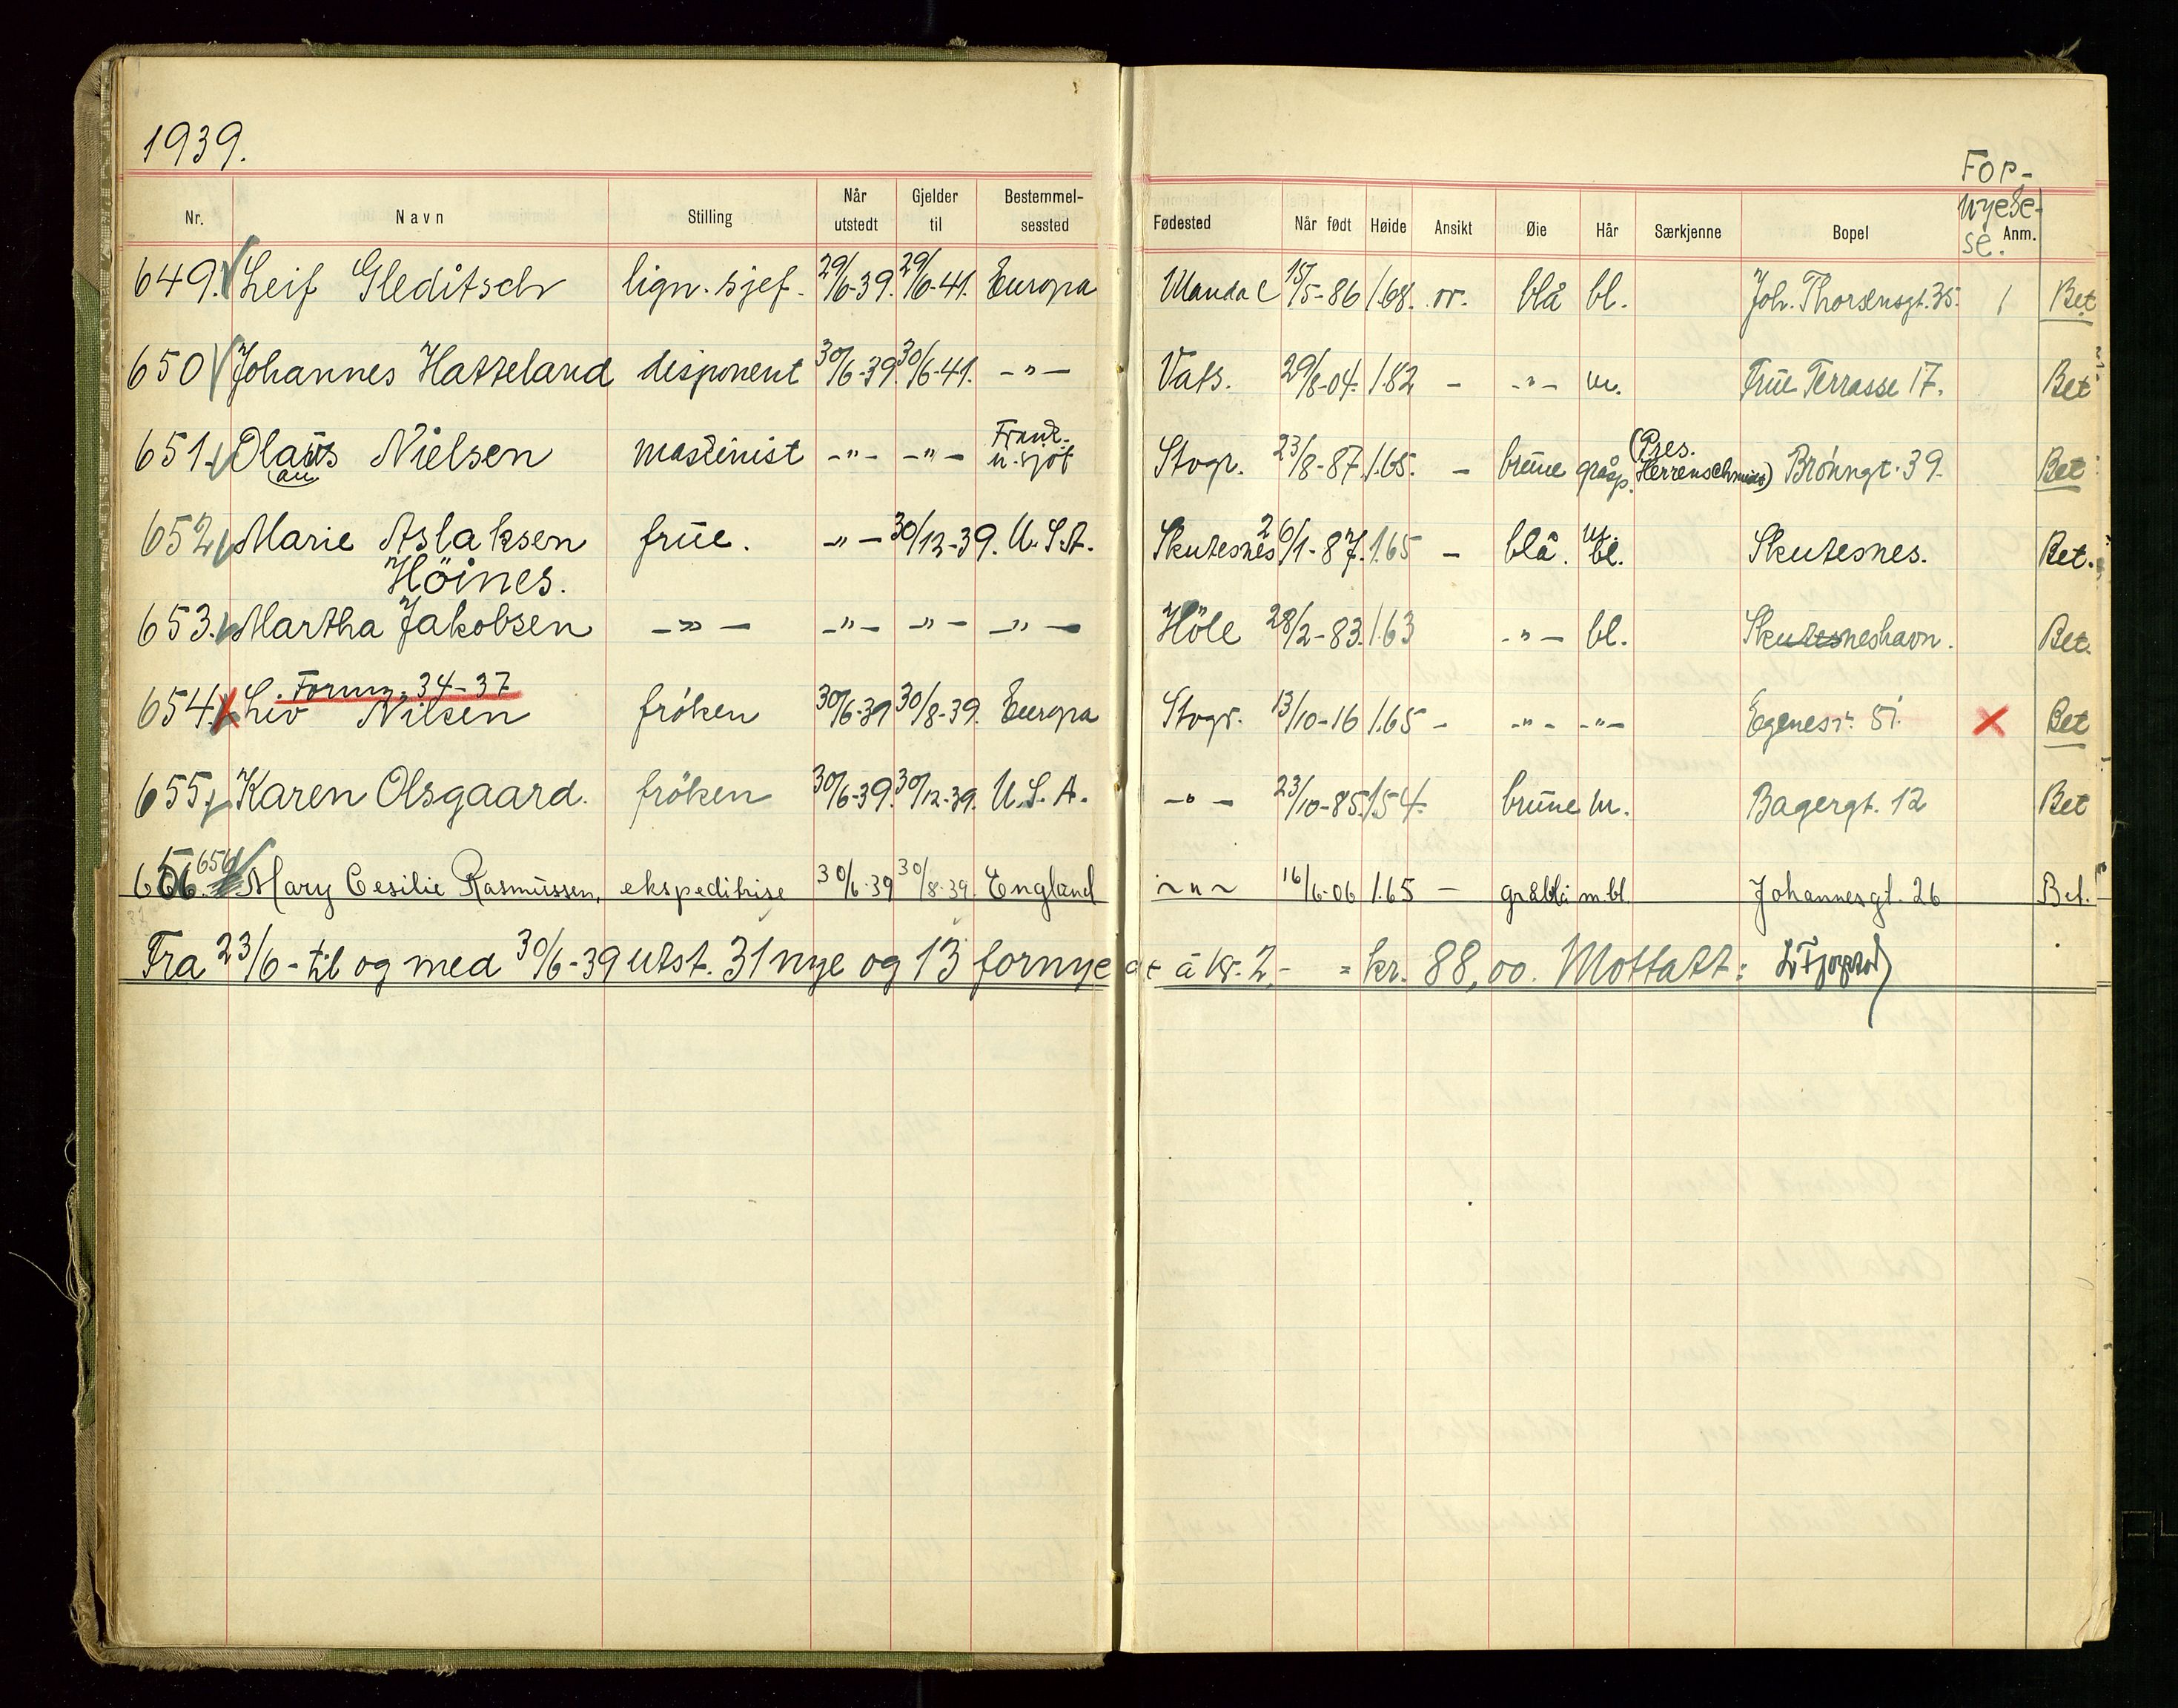 1939.
For-
nyelse-
se.
Nr. Navn Stilling Når utstedt Gjelder til Bestemmel-sessted Fødested Når født Høide Ansikt Øie Hår Særkjenne Bopel Anm.
649. Leif Gleditsch lign. sjef. 29/6-39. 29/6-41. Europa Mandal 15/5-86 1.68. ov. blå bl. Joh. Thorsensgt. 35. 1 Bet
650 Johannes Hatteland disponent 30/6-39 30/6-41. -"- Vats. 29/8-04. 1.82 - -"- m. Frue Terrasse 17. Bet
651. Olaus Nielsen maskinist -"- -"- Frank. u. sjøf Stvgr. 23/8-87. 1.65. - brune gråsp. (Pres. Herrenschmidt) Brönngt. 39. Bet
(au
652. Marie Aslaksen früe. -"- 30/12-39. U.S.A. Skutesnes 26/1-87. 1.65 - blå. m. bl. Skutesnes. Bet.
Höines.
653. Martha Jakobsen -"- -"- -"- -"- Höle 28/2-83. 1.63 -"- bl. Skutesneshavn. Bet.
Forny. 34-37
654. Liv Nilsen fröken 30/6-39 30/8-39. Europa Stvgr. 13/10-16 1.65 - -"- -"- Egenesv. 51. X Bet
655. Karen Olsgaard. fröken 30/6-39. 30/12-39. U.S.A. -"- 23/10-85. 1.54. brune m. Bagergt. 12 Bet
656. 656 Mary Cesilie Rasmüssen, ekspeditrise 30/6-39 30/8-39. England -"- 16/6-06 1.65 - gråblå m.bl. Johannesgt. 26 Bet.
Fra 23/6- til og med 30/6-39 utst. 31 nye og 13 fornyet á kr. 2,- = kr. 88,00. Mottatt: